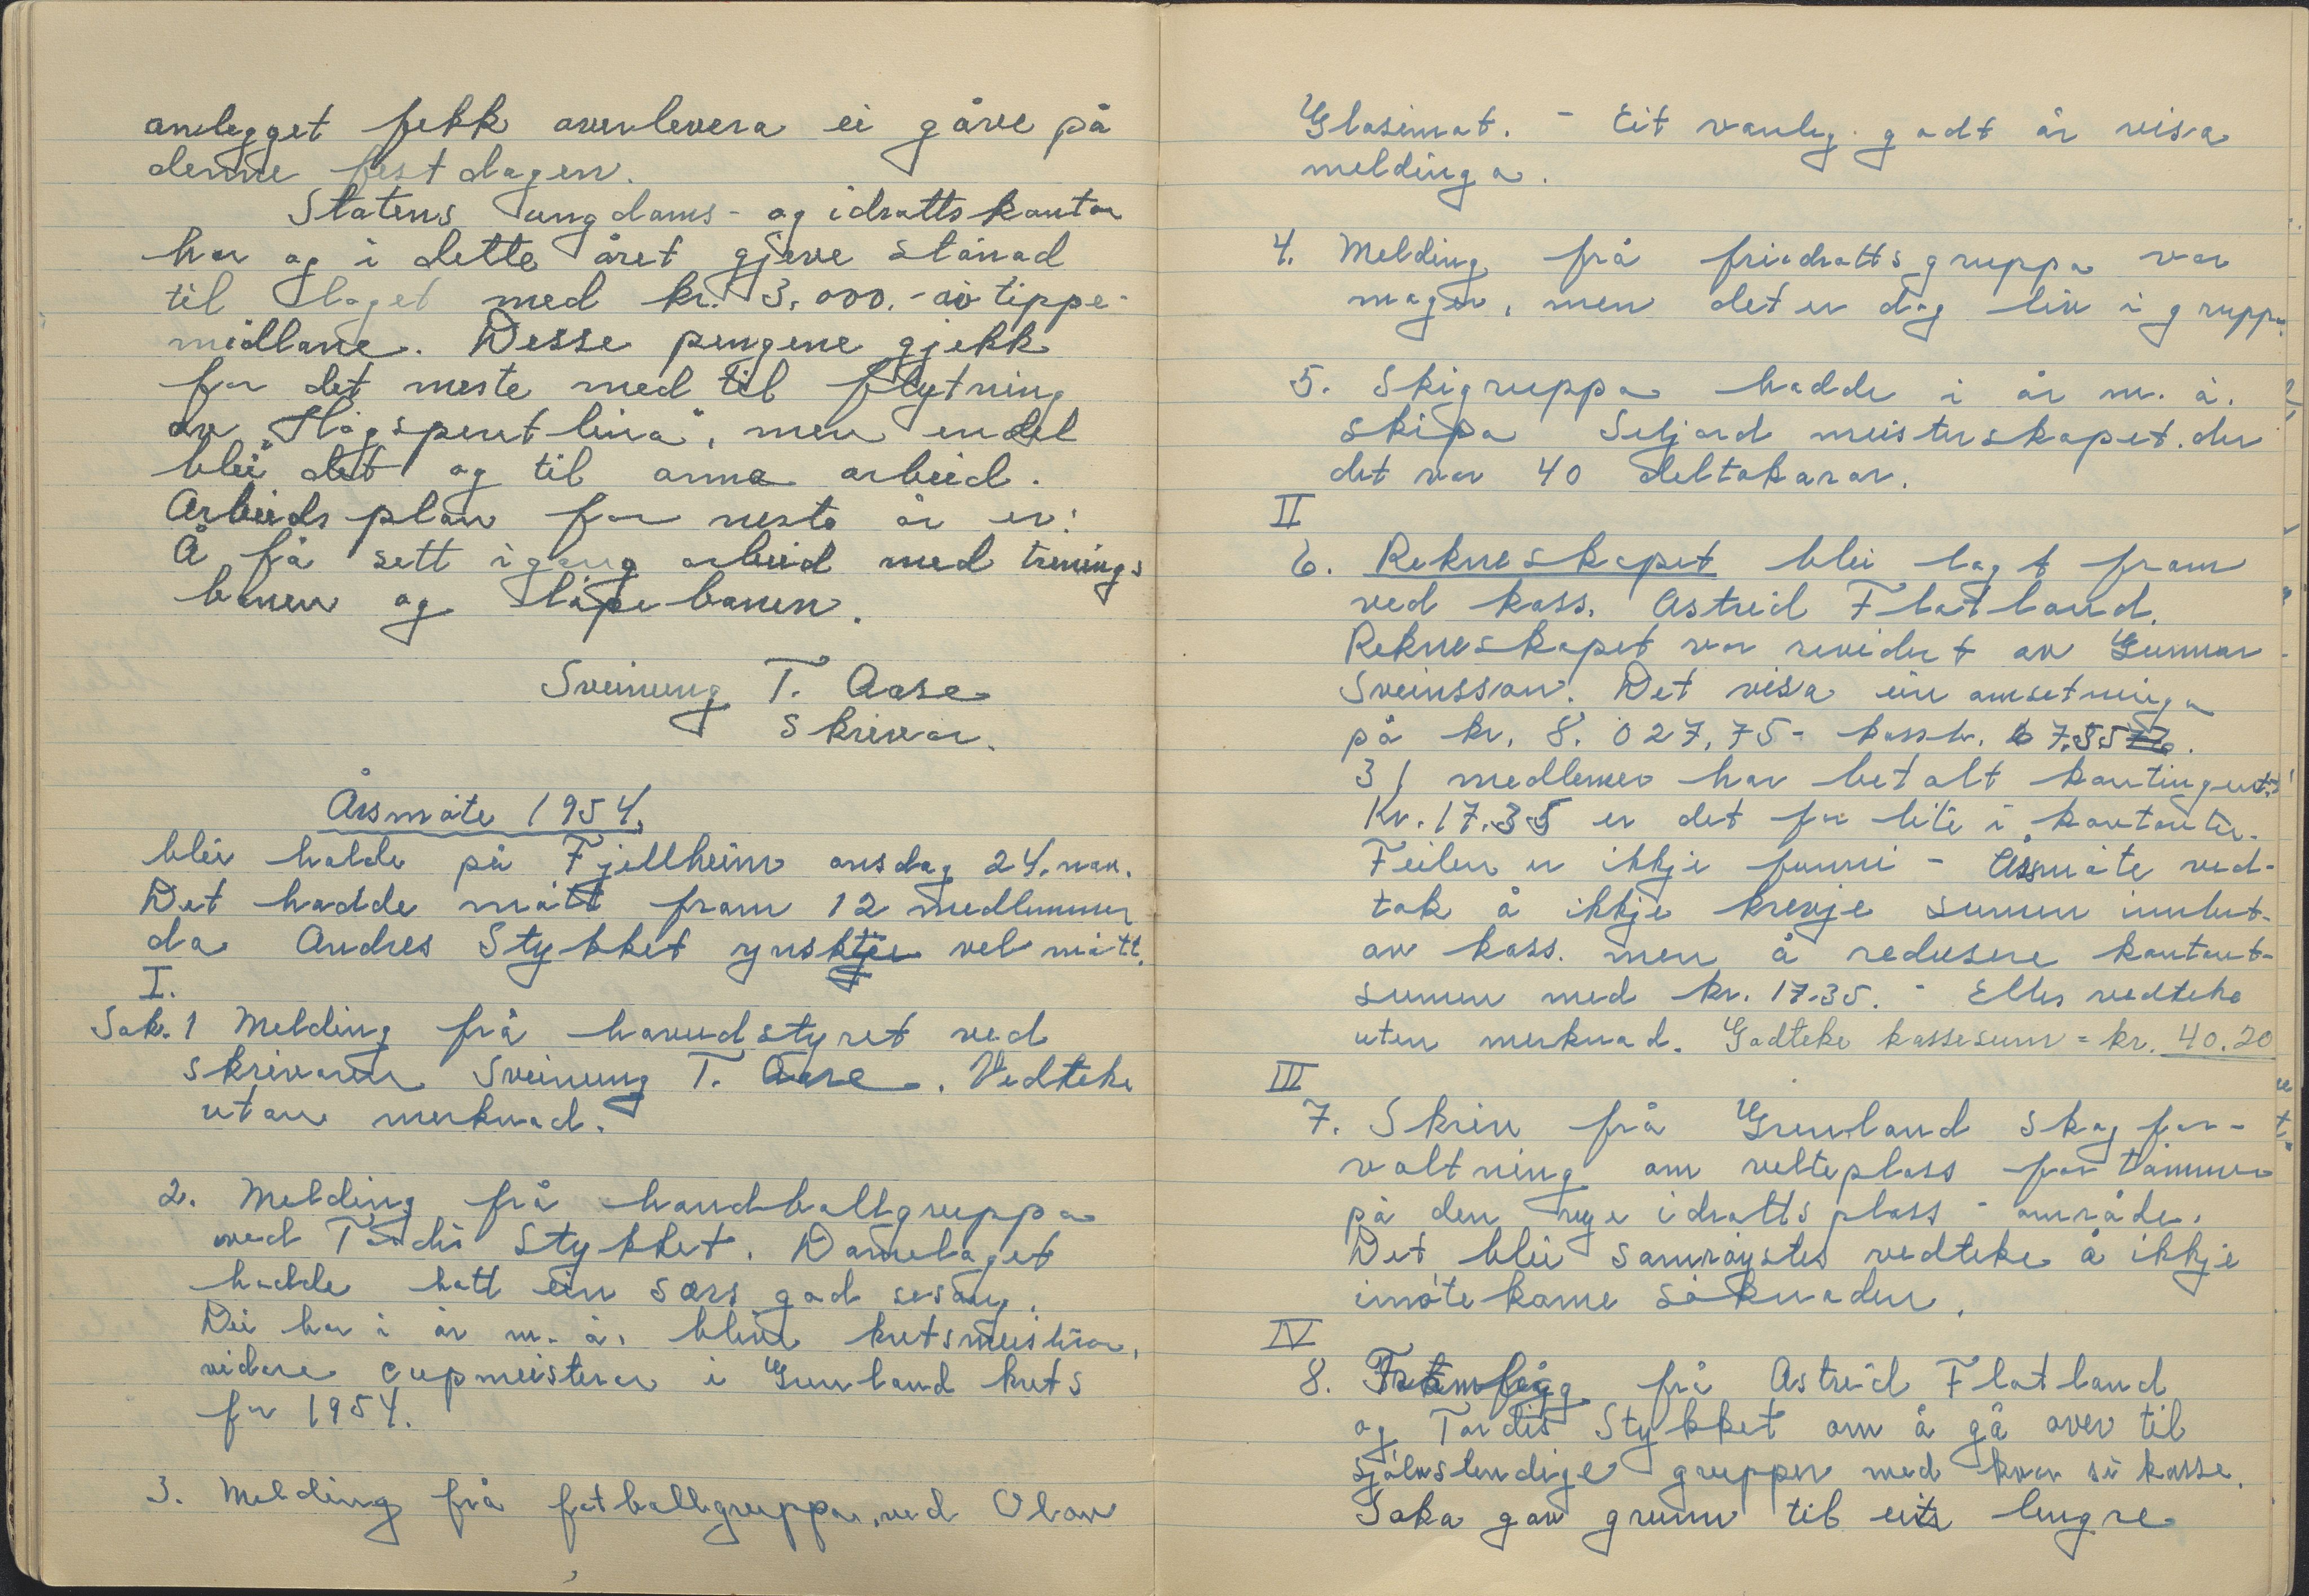 anlegget fekk overlevera ei gåve på
denne festdagen.
Statens ungdoms- og idrottskontor
har og i dette året gjeve stönad
til laget med kr. 3.000.- av tippe-
midlane. Desse pengene gjekk
for det meste med til flytning
av "Högspent lina", men endel
blei det og til anna arbeid.
Arbeidsplan for neste år er:
Å få sett igang arbeid med trenings
banen og löpebanen.
Sveinung T. Aase
Skrivar.
Årsmöte 1954.
blei halde på Fjellheim onsdag 24. nov.
Det hadde mött fram 12 medlemmer
da Andres Stykket ynskte vel mött.
I.
Sak. 1 Melding frå hovudstyret ved
skrivaren Sveinung T. Aase. Vedteke
utan merknad.
2. Melding frå handballgruppa
ved Tordis Stykket. Damelaget
hadde hatt ein særs god sesong.
Dei har i år m. a. blive kretsmeistrar,
vidare cupmeisterar i Grenland krets
for 1954.
3. Melding frå fotballgruppa, ved Olav
Glosimot. - Eit vanleg godt år visa
meldinga.
4. Melding frå friidrottsgruppa var
mager, men det er dog liv i gruppa.
5. Skigruppa hadde i år m. a.
skipa Seljord meisterskapet. der
det var 40 deltakarar.
II
6. Rekneskapet blei lagt fram
ved kass. Astrid Flatland.
Rekneskapet var revidert av Gunnar
Sveinsson. Det visa ein omsetninga
på kr. 8.027,75 - kassb. 67.55.
31 medlemer har betalt kontingent.
Kr. 17.35 er det for lite i kontanter.
Feilen er ikkje funni - Årsmöte ved-
tok å ikkje krevje summen innbet-
av kass. men å redusere kontant-
summen med kr. 17.35. - Elles vedteke
uten merknad. Godteke kassesum = kr. 40.20
III
7. Skriv frå Grenland Skogfor-
valtning om velteplass for tömmer
på den nye idrottsplass - område.
Det blei samröystes vedteke å ikkje
imötekome söknaden.
IV
8. Framlegg frå Astrid Flatland
og Tordis Stykket om å gå over til
sjölvstendige grupper med kvar si kasse.
Saka gav grunn til eit lengre